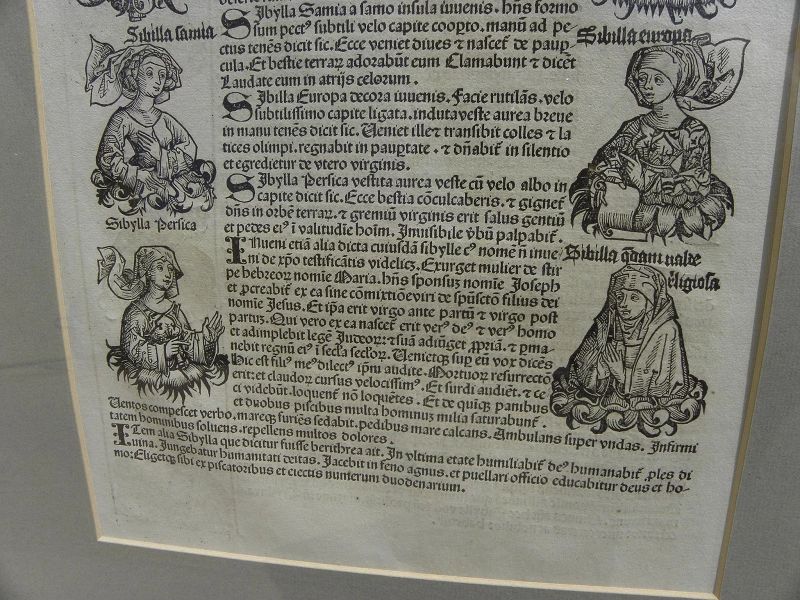 Sibylla Samia a samo insula iuuenis. hñs formo
sum pect⁹ subtili velo capite coopto. manũ ad pe
ctus tenẽs dicit sic. Ecce veniet diues & nascef̃ de pauꝑ
cula. Et bestie terraꝝ adorabũt eum Clamabunt & dicẽt
Laudate eum in atrijs celorum.
Sibilla samia
Sibilla europa
Sibilla Europa decora iuuenis. Facie rutilãs. velo
subtilissimo capite ligata. induta veste aurea breue
in manu tenẽs dicit sic. Ueniet ille & transibit colles & la
tices olimpi. regnabit in pauptate. & dñabit̃ in silentio
et egredietur de vtero virginis.
Sibylla Persica
Sibylla Persica vestita aurea veste cũ velo albo in
capite dicit sic. Ecce bestia cõculcaberis. & gignet̃
dñs in orbẽ terraꝝ. & gremiũ virginis erit salus gentiũ
et pedes ei⁹ ĩ valitudĩe hoĩm. Inuisibile v̓bũ palpabit̃.
Sibilla q̃dam nulte
religiosa
Inueni etiã alia dicta cuiusdã sibylle c⁹ nomẽ ñ inue
ni de xp̃o testificãtis videlicꝫ. Exurget mulier de stir
pe hebreoꝝ nomĩe Maria. hñs sponsuꝫ nomĩe Joseph
et ꝓcreabit̃ ex ea sine cõmixtiõe viri de sp̃uscto filius dei
nomĩe Jesus. Et ip̃a erit virgo ante partũ & virgo post
partuꝫ. Qui vero ex ea nascet̃ erit ver⁹ de⁹ & ver⁹ homo
et adimplebit legẽ Judeoꝝ: & suã adiũget ꝓpriã. & ꝑma
nebit regnũ ei⁹ ĩ sec̃la sec̃loꝝ. Uenietqꝫ suꝑ eũ vox dicẽs
Hic est fili⁹ me⁹ dilect⁹ ip̃m audite. Mortuoꝝ resurrectõ
erit: et claudoꝝ cursus velocissim⁹. Et surdi audiẽt. & ce
ci videbũt. loquenf̃ nõ loquẽtes. Et de quicꝫ panibus
et duobus piscibus multa hominuꝫ milia saturabunf̃.
Uentos compescet verbo. mareqꝫ furiẽs sedabit. pedibus mare calcans. Ambulans super vndas. Infirmi
tatem hominibus soluens. repellens multos dolores.
Item alia Sibylla que dicitur fuisse berithrea ait. In vltima etate humiliabit̃ de⁹ humanabit̃ ꝓles di
uina. Jungebatur humanitati deitas. Jacebit in feno agnus. et puellari officio educabitur deus et ho⸗
mo: Eligetqꝫ sibi ex piscatoribus et eiectis numerum duodenarium.